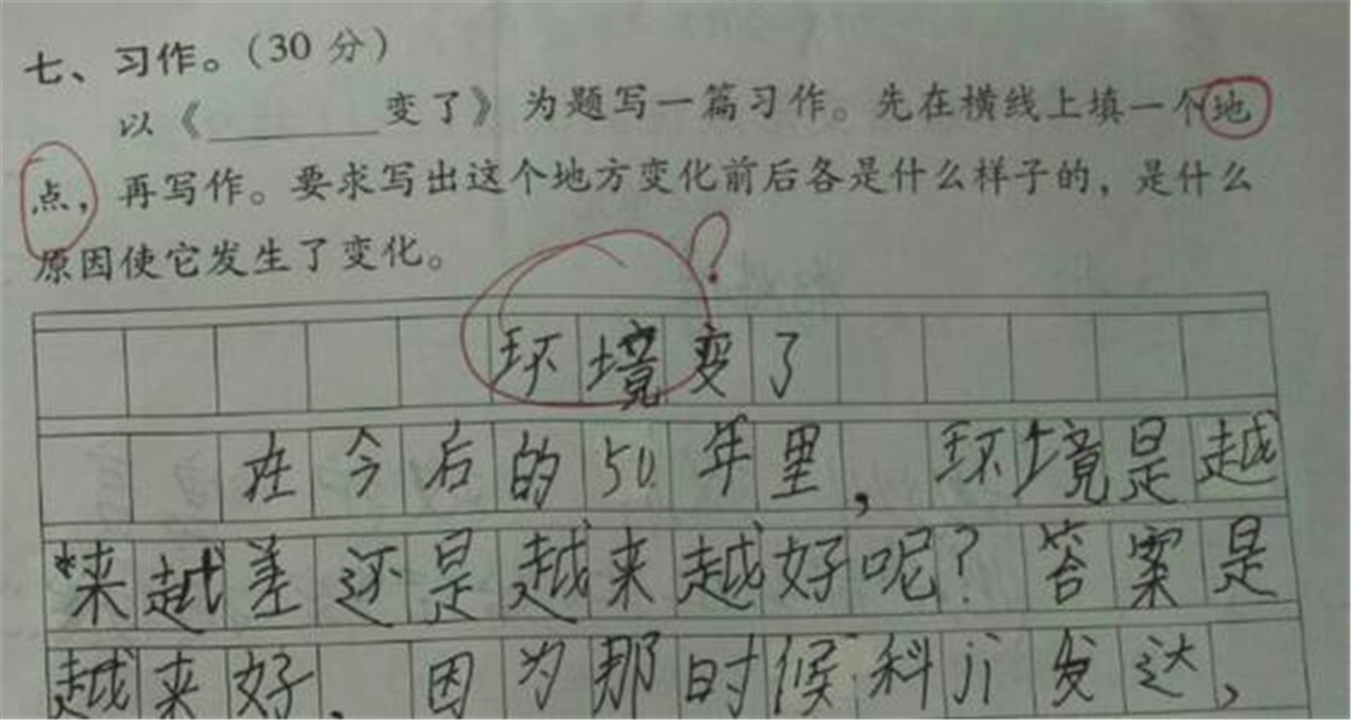 七、习作。(30 分)
以《________变了》为题写一篇习作。先在横线上填一个地
点，再写作。要求写出这个地方变化前后各是什么样子的，是什么
原因使它发生了变化。
?
环境变了
在今后的50年里，环境是越
来越差还是越来越好呢?答案是
越来越好.因为那时候科ji发达，